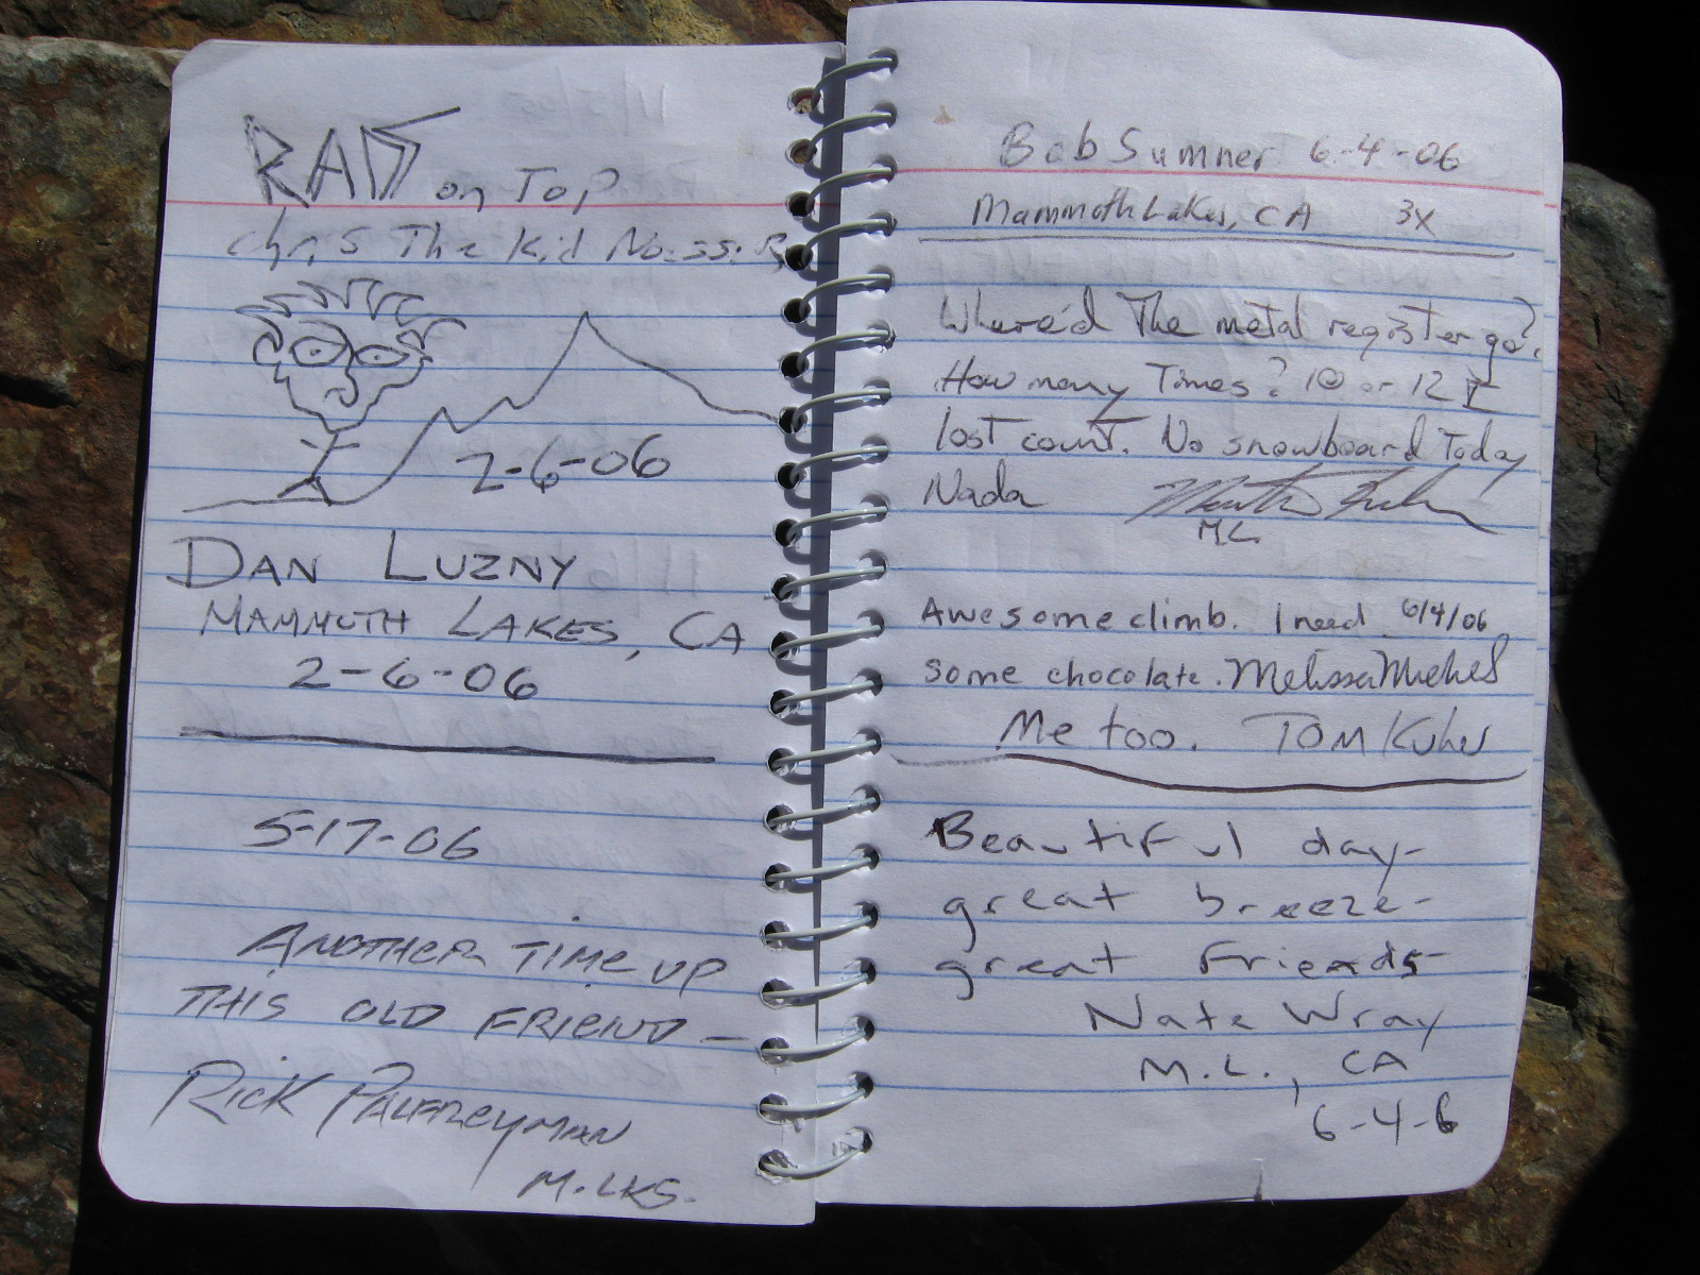 RAD on Top
Chris The Kid
2-6-06
DAN LUZNY
MAMMOTH LAKES, CA
2-6-06
5-17-06
ANOTHER TIME UP
THIS OLD FRIEND —
RICK PALFREYMAN
M. LKS.
Bob Sumner 6-4-06
Mammoth Lakes, CA 3X
Where'd The metal register go?
How many Times? 10 or 12 I
lost count. No snowboard Today
Nada
M.L.
Awesome climb. I need 6/4/06
some chocolate. Melissa
Me too. TOM
Beautiful day-
great breeze-
great Friends-
Nate Wray
M.L., CA
6-4-6